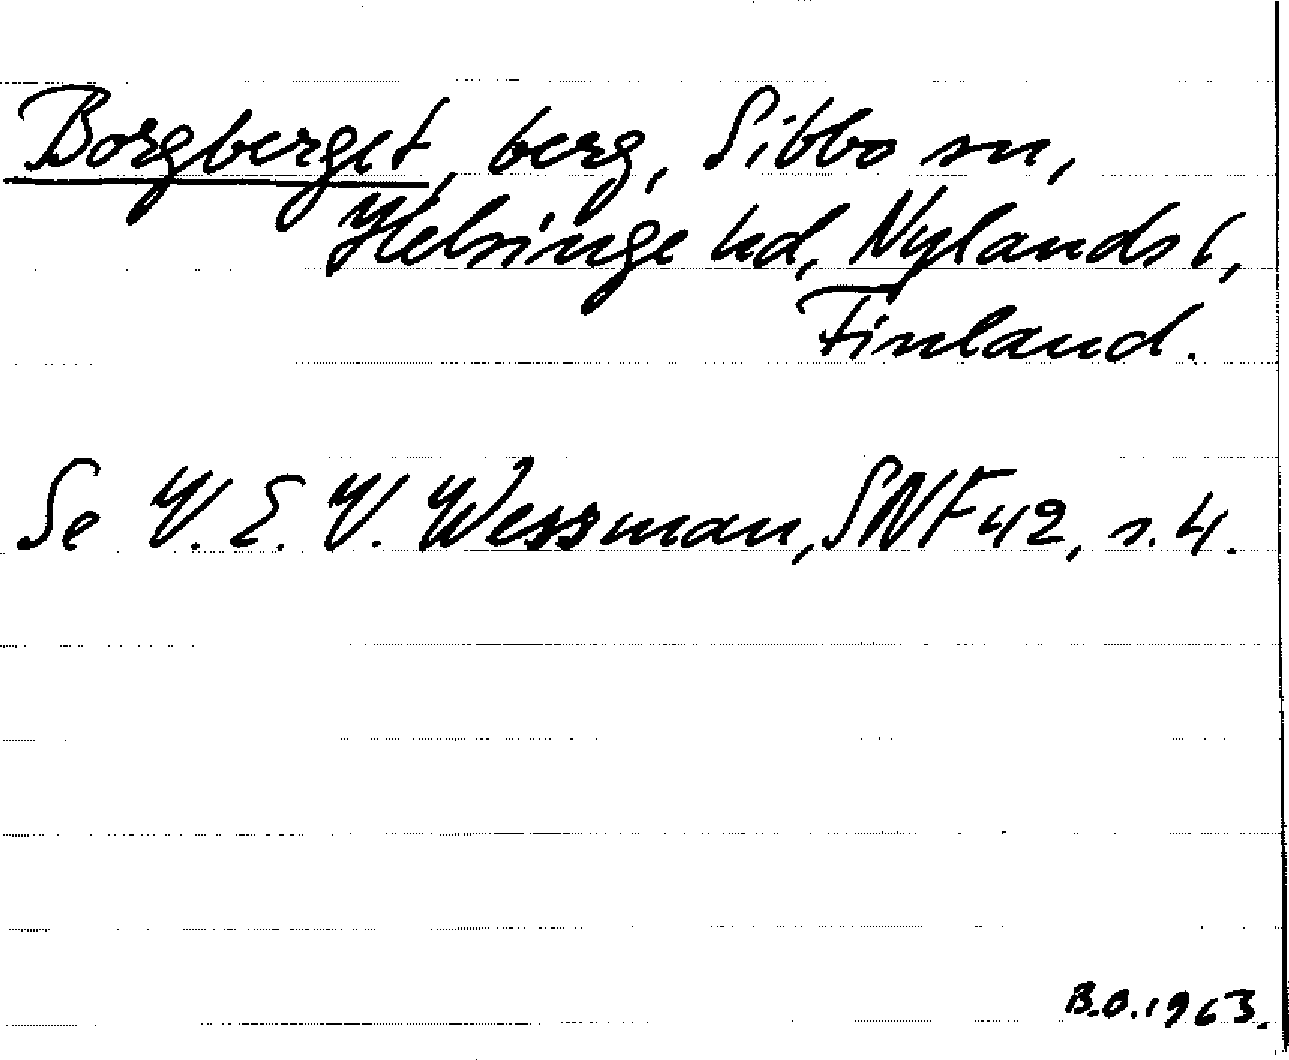 Borgberget, berg, Sibbo sn,
Helsinge hd, Nylands l,
Finland.
Se V. E. V. Wessman, SNF 42, s. 4.
B.O. 1963.